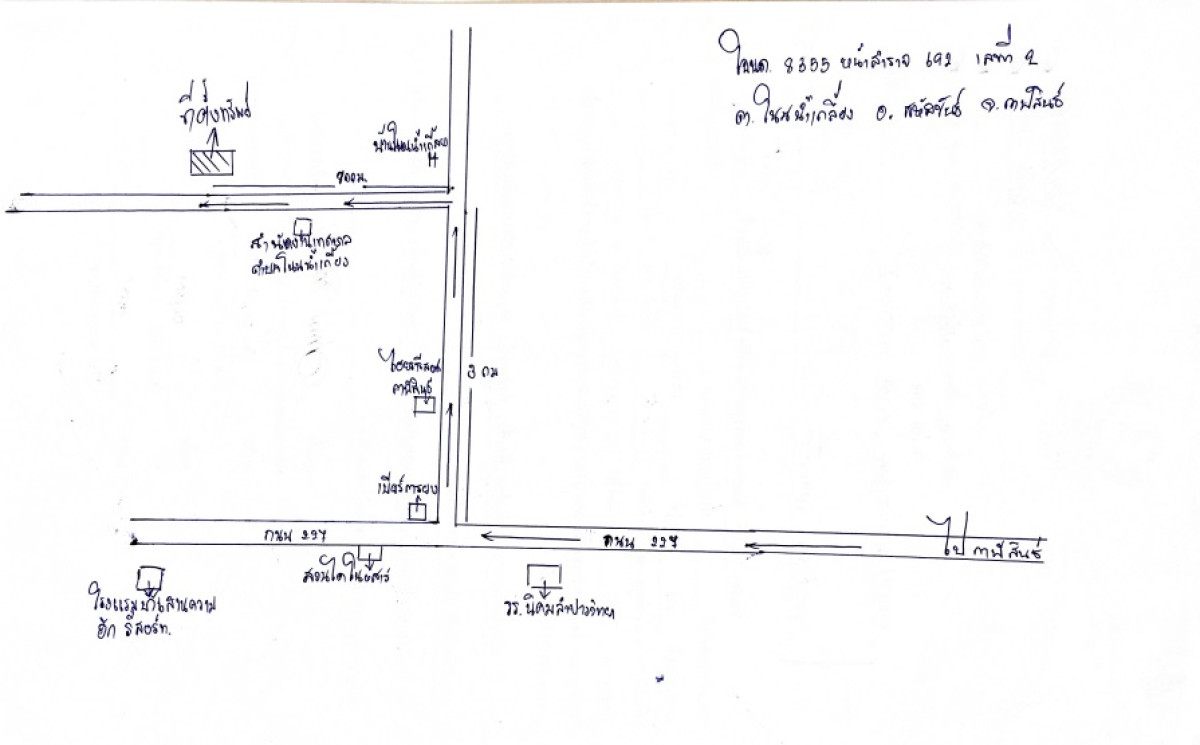 โฉนด 8355 หน้าสำรวจ 692 เลขที่ 2
ต. โนนน้ำเกลี้ยง อ. สหัสขันธ์ จ. กาฬสินธุ์
ที่ตั้งทรัพย์
บ้านโนนน้ำเกลี้ยง
700ม.
สำนักงานเทศบาล
ตำบลโนนน้ำเกลี้ยง
กาฬสินธุ์
3 กม
ถนน 227
ถนน 227
ไปกาฬสินธุ์
สวนไดโนเสาร์
โรงแรมบ้านสานความ
รัก รีสอร์ท.
รร. นิคมลำปาววิทยา